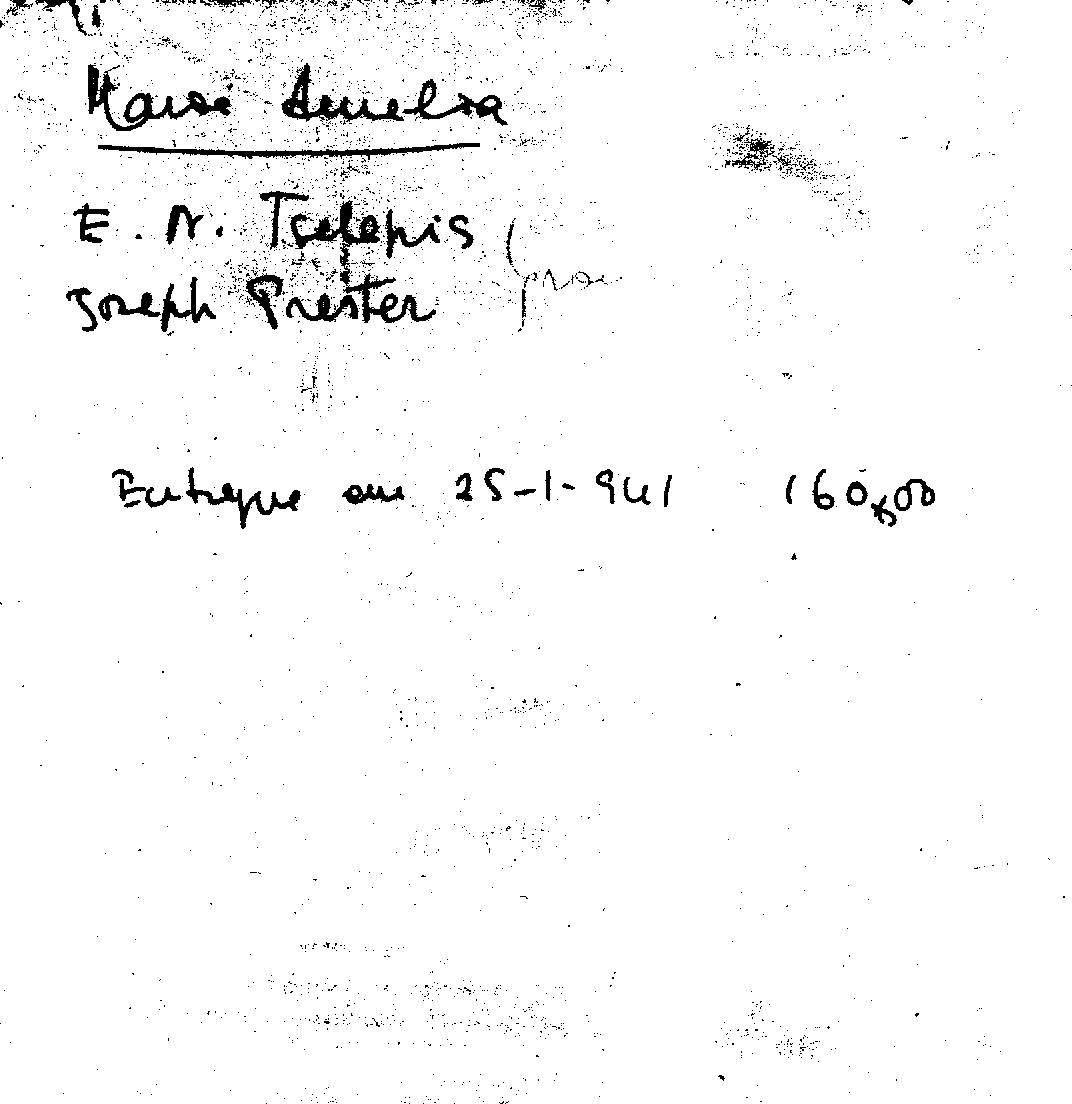 Maria Amelia
E. N. Tselepis
Joseph Prester
Entregue em 25-1-941 160,00